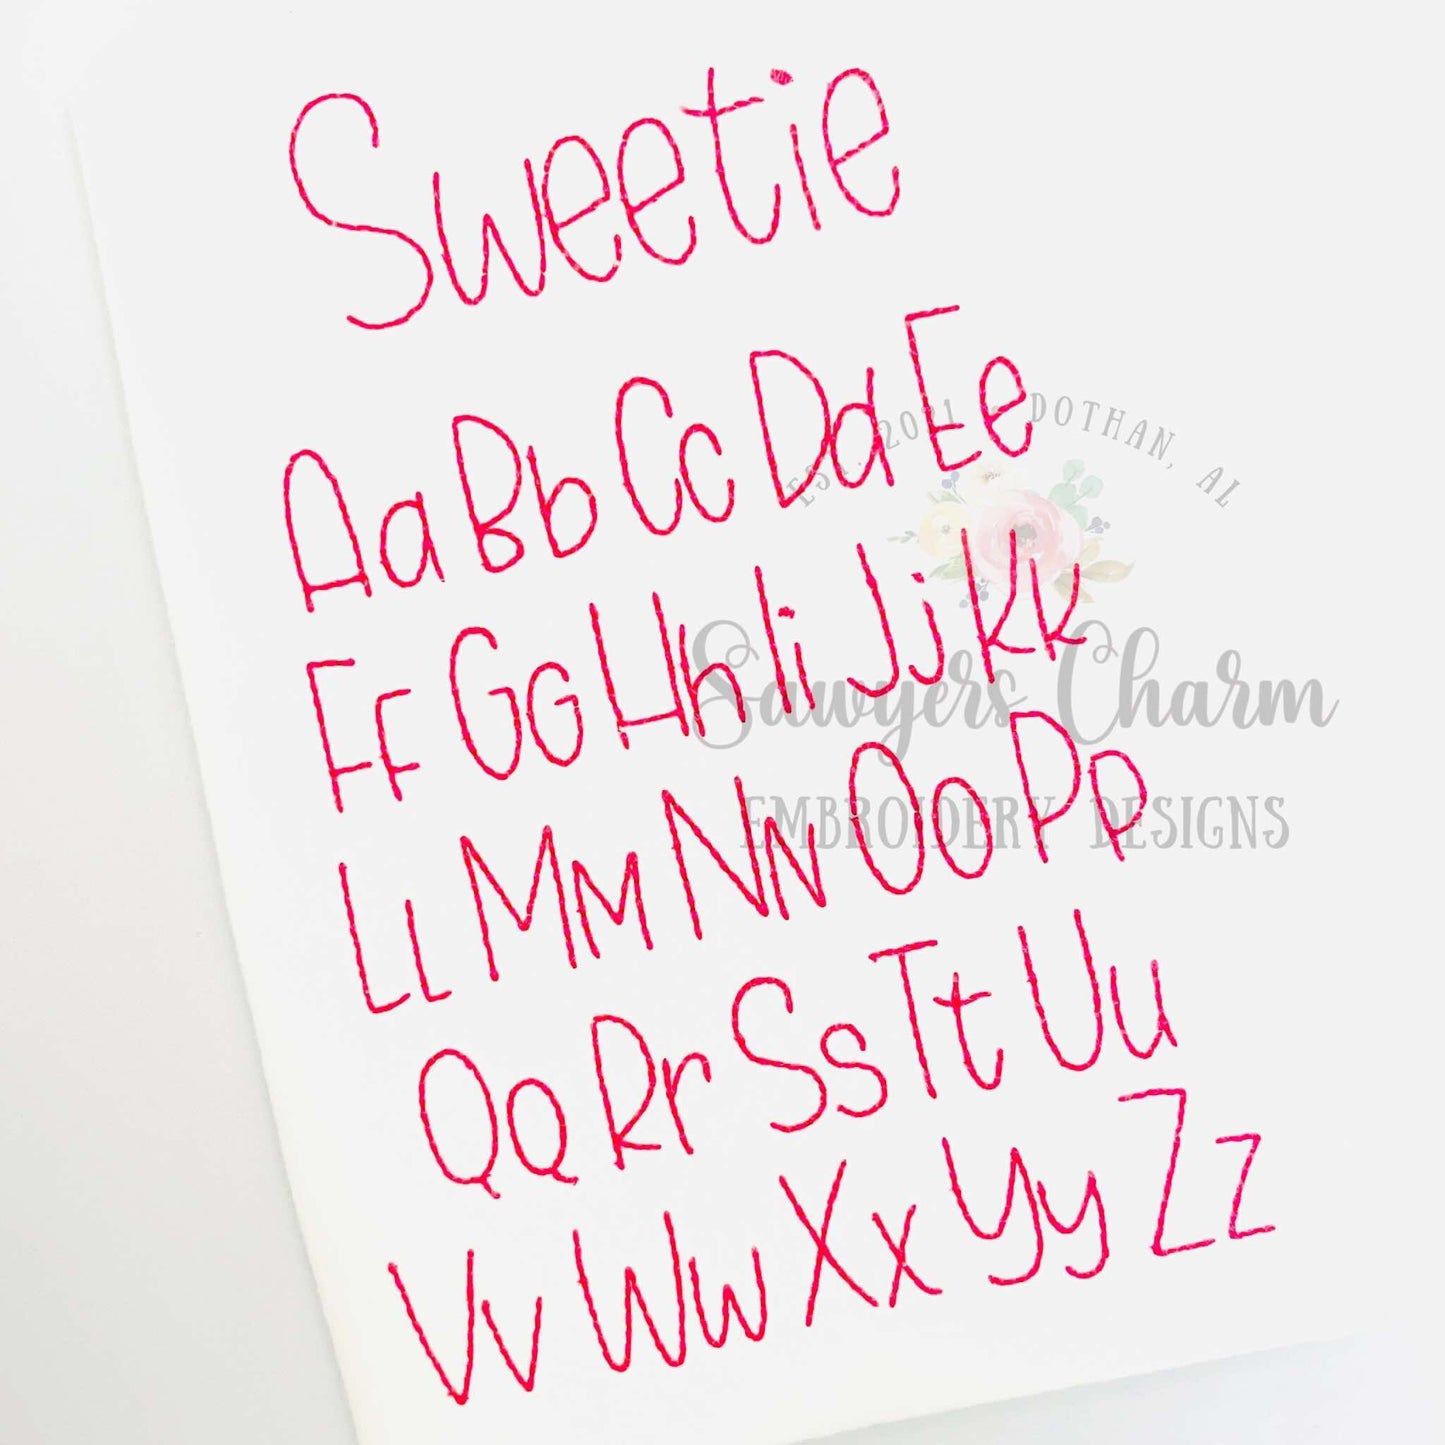 Sweetie
Aa Bb Cc Dd Ee
EST. 2021 DOTHAN, AL
Ff Gg Hh Ii Jj Kk
Sawyers Charm
EMBROIDERY DESIGNS
Ll Mm Nn Oo Pp
Qq Rr Ss Tt Uu
Vv Ww Xx Yy Zz